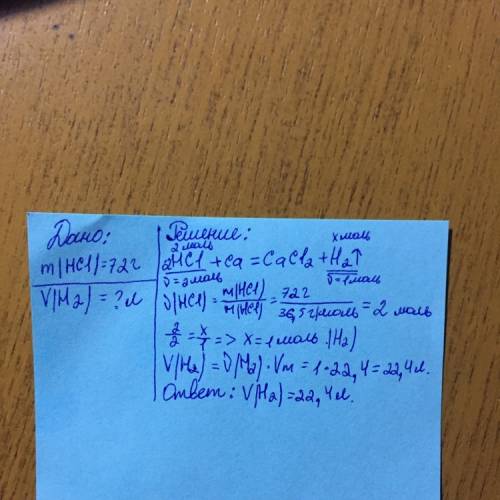 Дано:
m(HCl)=72г
V(H₂) = ? л
Решение:
2 моль
x моль
2HCl + Ca = CaCl₂ + H₂↑
ν=2моль
ν=1моль
ν(HCl) = m(HCl)/M(HCl) = 72г/36,5г/моль = 2 моль
2/2 = x/1 => x = 1 моль (H₂)
V(H₂) = ν(H₂) · Vm = 1 · 22,4 = 22,4 л.
Ответ: V(H₂) = 22,4 л.